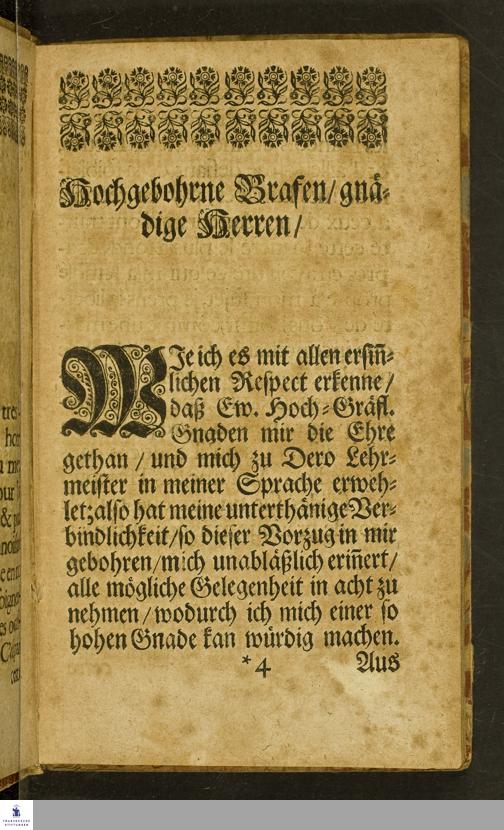 Hochgebohrne Grafen/ gnä-
dige Herren/
WJe ich es mit allen ersiñ-
lichen Respect erkenne/
daß Ew. Hoch-Gräfl.
Gnaden mir die Ehre
gethan / und mich zu Dero Lehr-
meister in meiner Sprache erweh-
let; also hat meine unterthänige Ver-
bindlichkeit/ so dieser Vorzug in mir
gebohren/ mich unabläßlich eriñert/
alle mögliche Gelegenheit in acht zu
nehmen/ wodurch ich mich einer so
hohen Gnade kan würdig machen.
*4 Aus